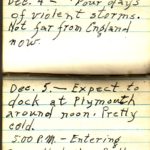 Dec. 4.— Four days
of violent storms.
Not far from England
now.
Dec. 5.— Expect to
dock at Plymouth
around noon. Pretty
cold.
5:00 P.M.— Entering